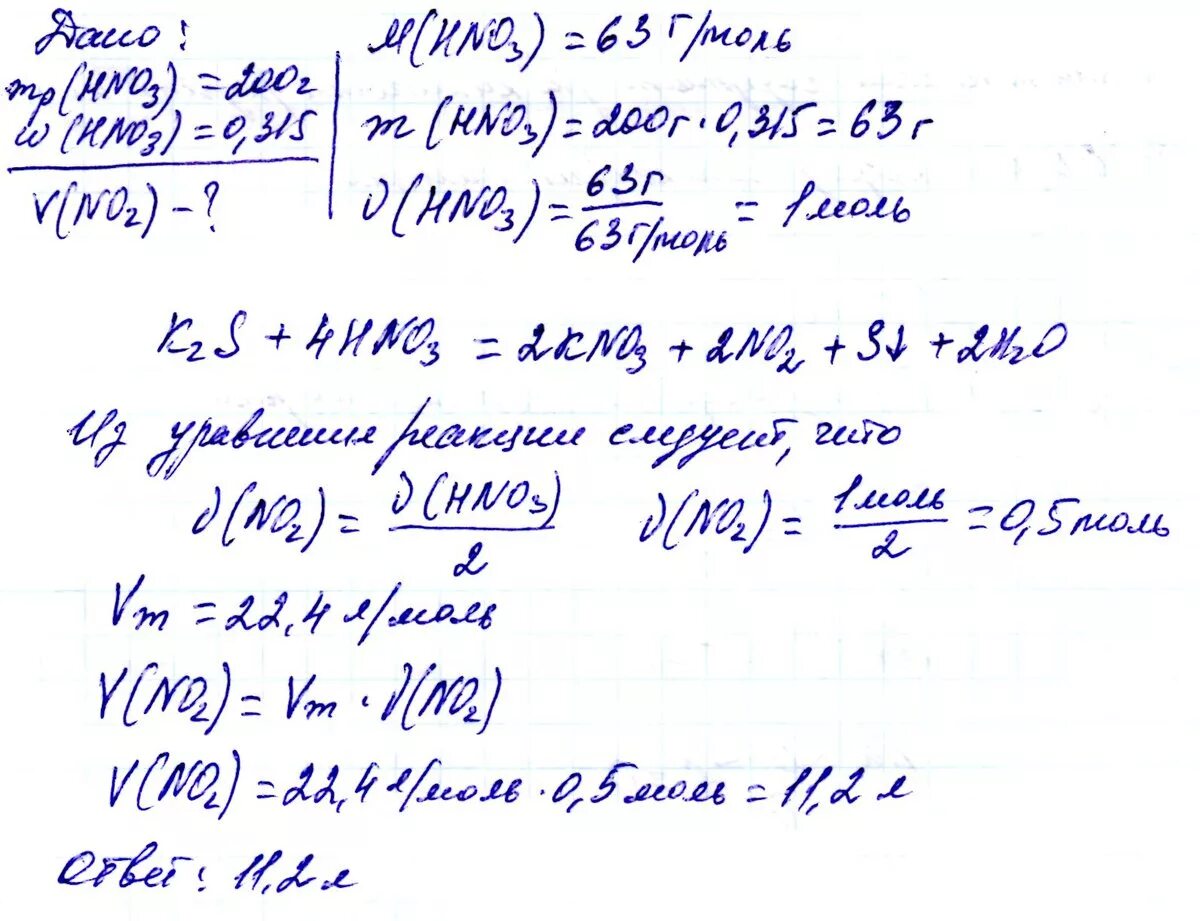 Дано:
mр(HNO₃) = 200г
ω(HNO₃) = 0,315
V(NO₂) - ?
M(HNO₃) = 63 г/моль
m(HNO₃) = 200г · 0,315 = 63 г
ν(HNO₃) = 63г / 63г/моль = 1 моль
K₂S + 4HNO₃ = 2KNO₃ + 2NO₂ + S↓ + 2H₂O
Из уравнения реакции следует, что
ν(NO₂) = ν(HNO₃) / 2 ν(NO₂) = 1 моль / 2 = 0,5 моль
Vm = 22,4 л/моль
V(NO₂) = Vm · ν(NO₂)
V(NO₂) = 22,4 л/моль · 0,5 моль = 11,2 л
Ответ: 11,2 л